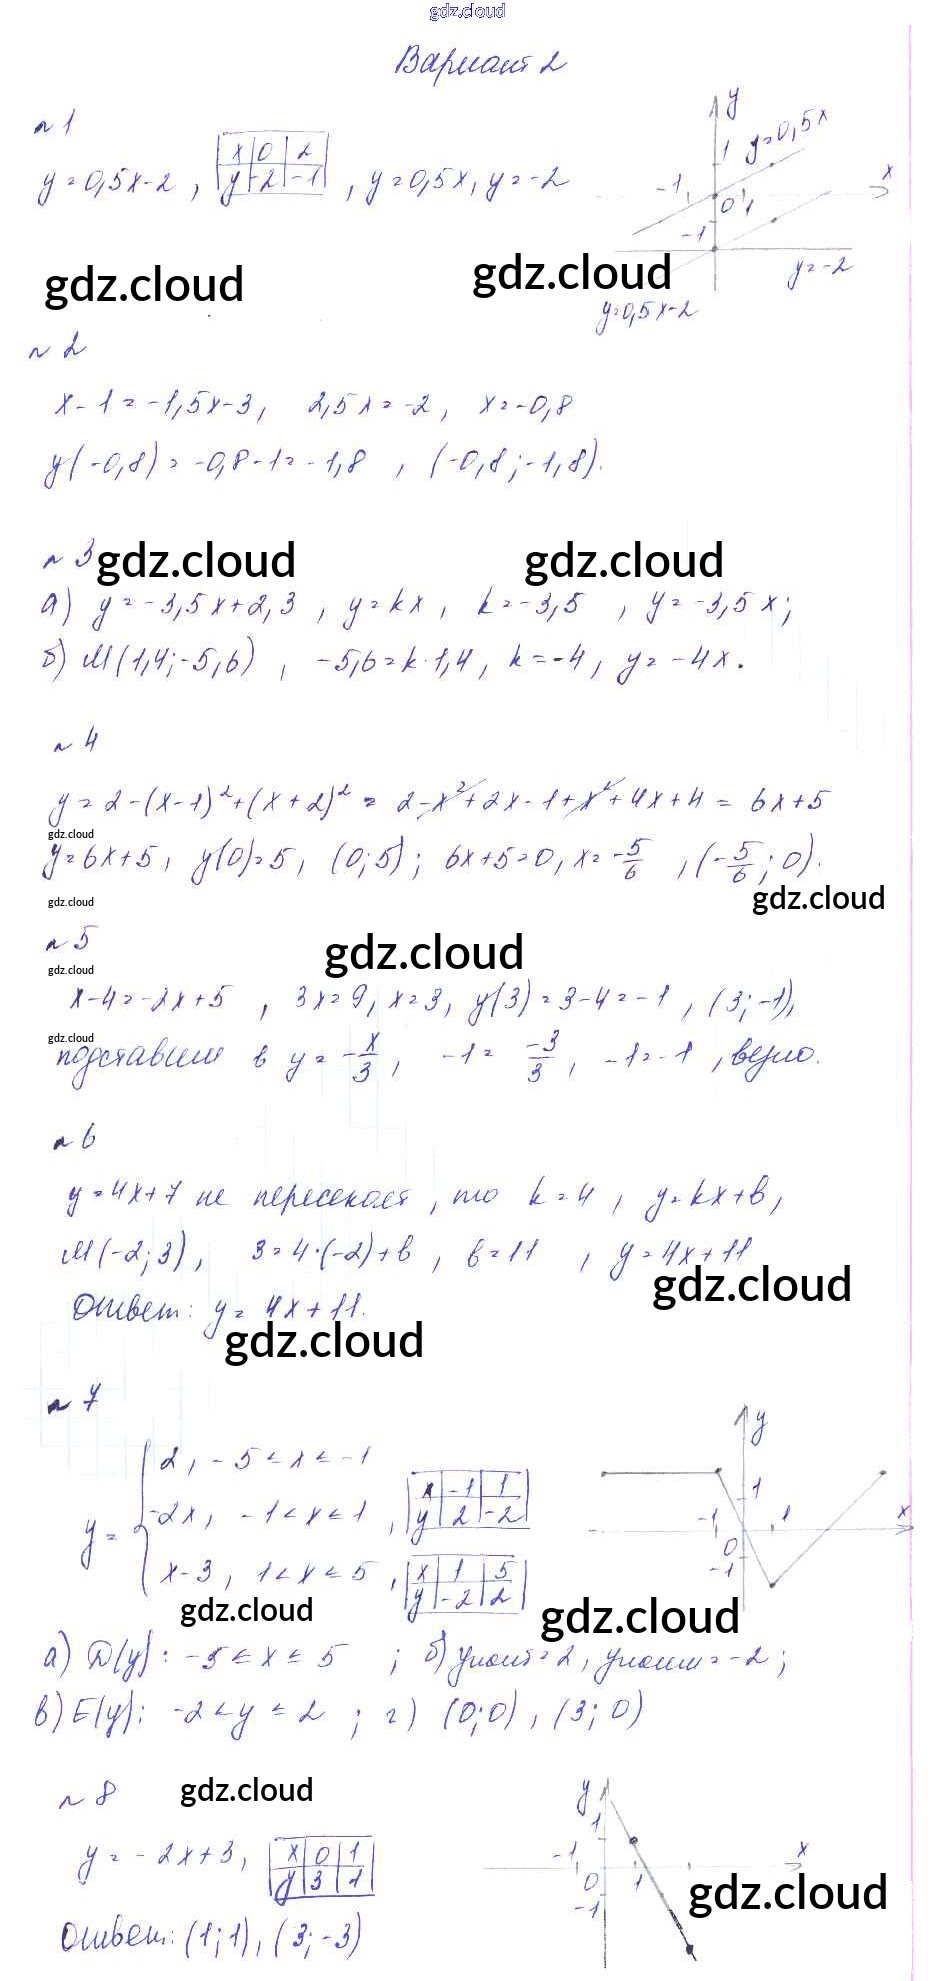 gdz.cloud
Вариант 2
№ 1
y = 0,5x-2 , | x | 0 | 2 | , y = 0,5x, y = -2
| y | -2 | -1 |
y
y=0,5x
1
-1
x
0 1
-1
y = -2
y=0,5x-2
gdz.cloud gdz.cloud
№ 2
x - 1 = -1,5x-3, 2,5x = -2, x = -0,8
y(-0,8) = -0,8-1 = -1,8 , (-0,8; -1,8).
№ 3 gdz.cloud gdz.cloud
а) y = -3,5x+2,3 , y = kx, k = -3,5 , y = -3,5x;
б) M(1,4; -5,6) , -5,6 = k·1,4, k = -4, y = -4x.
№ 4
y = 2-(x-1)²+(x+2)² = 2-x²+2x-1+x²+4x+4 = 6x+5
gdz.cloud
y = 6x+5, y(0) = 5, (0; 5); 6x+5=0, x = -5/6 , (-5/6; 0).
gdz.cloud gdz.cloud
№ 5 gdz.cloud
gdz.cloud
x-4 = -2x+5 , 3x = 9, x = 3, y(3) = 3-4 = -1 , (3; -1),
gdz.cloud
подставим в y = -x/3 , -1 = -3/3 , -1 = -1 , верно.
№ 6
y = 4x+7 не пересекает, то k = 4 , y = kx+b,
M(-2; 3), 3 = 4·(-2)+b , b = 11 , y = 4x+11
gdz.cloud
Ответ: y = 4x+11.
gdz.cloud
№ 7
y = { 2, -5 ≤ x ≤ -1
-2x, -1 < x ≤ 1 , | x | -1 | 1 |
| y | 2 | -2 |
x-3, 1 < x ≤ 5 , | x | 1 | 5 |
| y | -2 | 2 |
y
1
-1 1 x
0
-1
gdz.cloud gdz.cloud
а) D(y): -5 ≤ x ≤ 5 ; б) yнаиб = 2, yнаим = -2;
в) E(y): -2 ≤ y ≤ 2 ; г) (0; 0), (3; 0)
№ 8 gdz.cloud
y = -2x+3, | x | 0 | 1 |
| y | 3 | 1 |
y
1
-1 x
0 1
-1
gdz.cloud
Ответ: (1; 1), (3; -3)